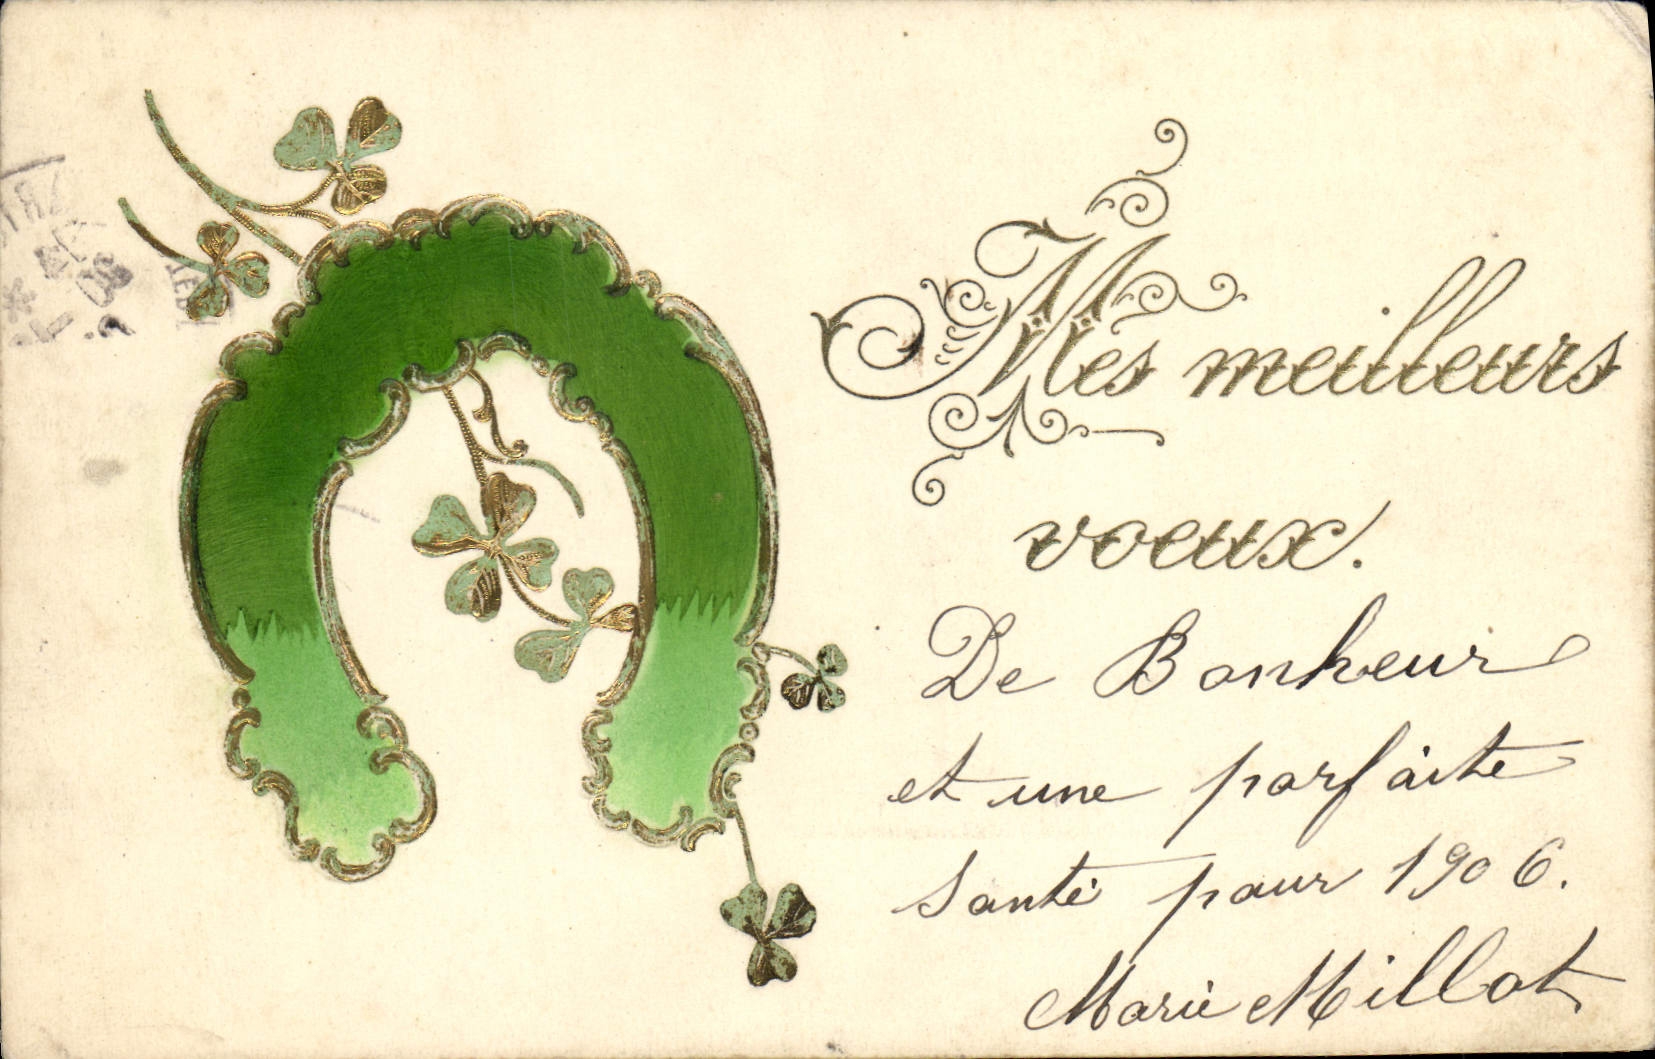 Mes meilleurs
voeux.
De Bonheur
et une parfaite
santé pour 1906.
Marie Millot